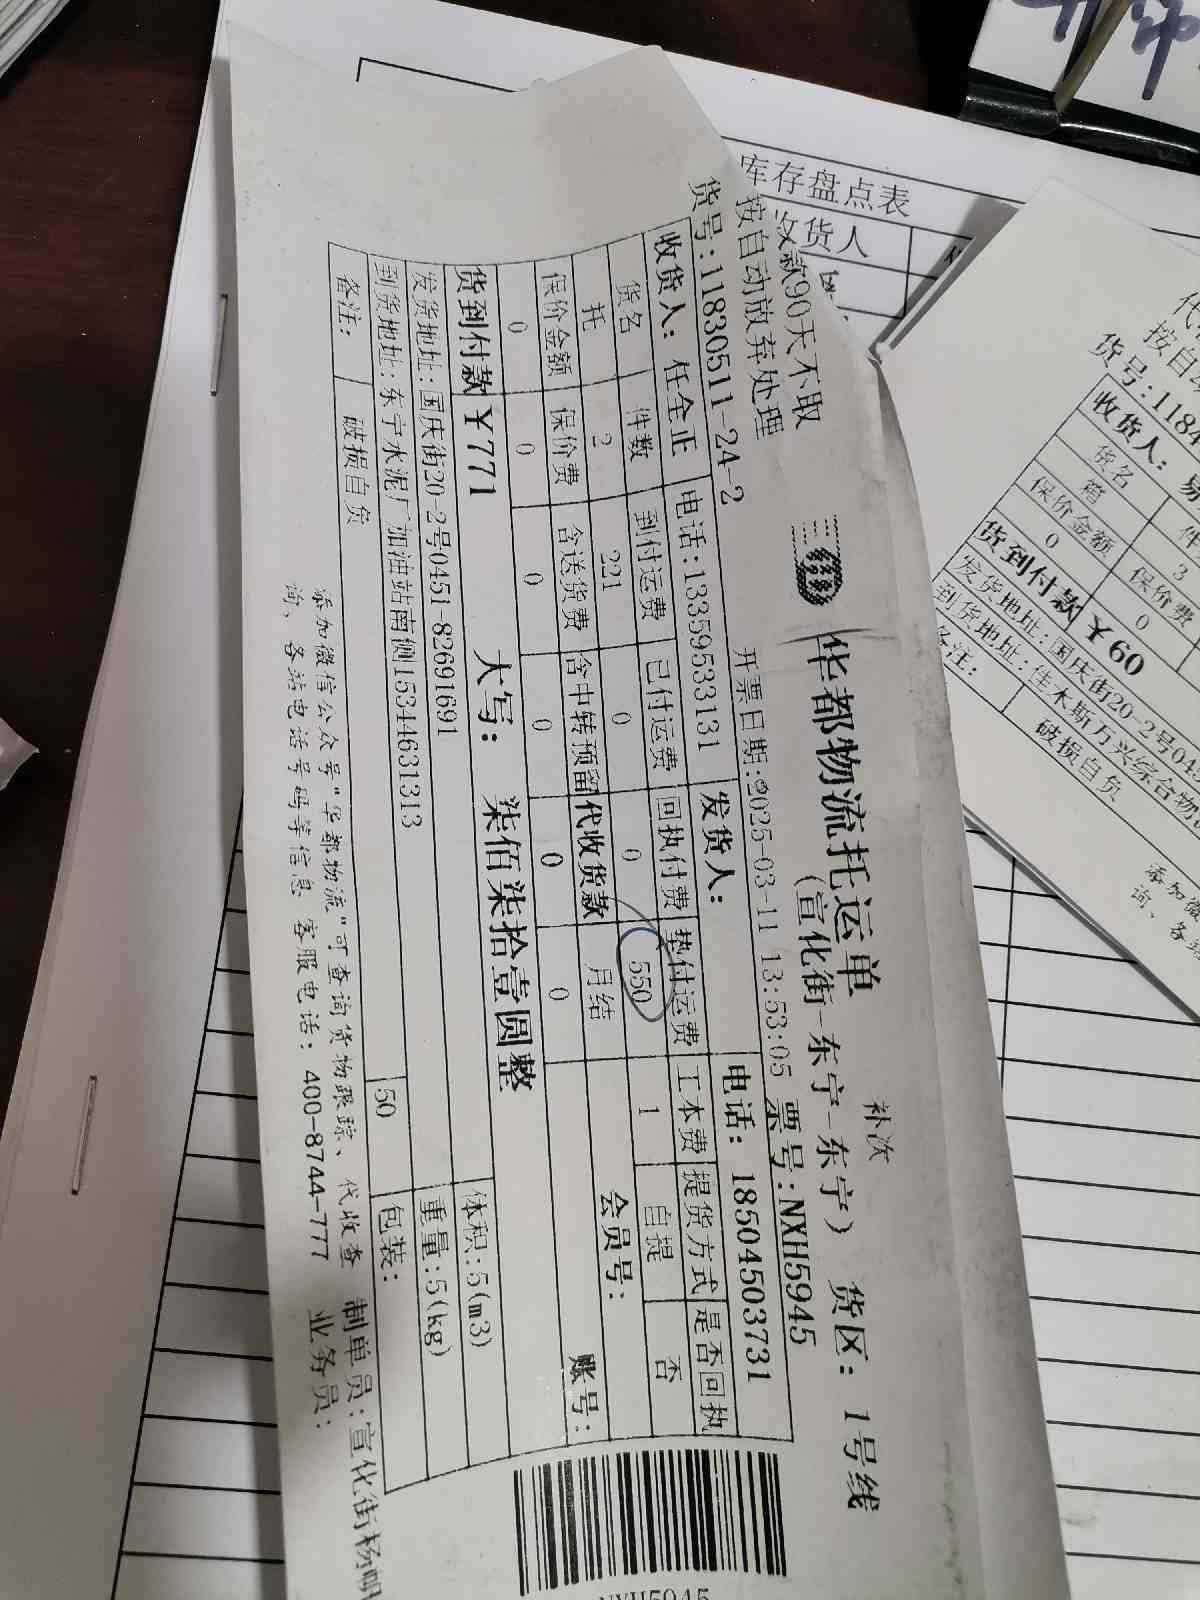 华都物流托运单
补次
(宣化街-东宁-东宁) 货区: 1号线
款90天不取
按自动放弃处理
开票日期:2025-03-11 13:53:05 票号:NXH5945
货号:11830511-24-2
收货人: 任全正 电话:13359533131 发货人: 电话: 18504503731
货名 件数 到付运费 已付运费 回执付费 垫付运费 工本费 提货方式 是否回执
托 2 221 0 0 550 1 自提 否
保价金额 保价费 含送货费 含中转预留 代收货款 月结 会员号:
0 0 0 0 0 0 账号:
货到付款￥771 大写: 柒佰柒拾壹圆整
体积:5(m3)
发货地址:国庆街20-2号0451-82691691 重量:5(kg)
到货地址:东宁水泥厂加油站南侧15344631313 50 包装:
备注: 破损自负
添加微信公众号"华都物流"可查询货物跟踪、代收查
询、各站电话号码等信息 客服电话: 400-8744-777
制单员:宣化街杨明
业务员:
NXH5945
库存盘点表
收货人
代
按自
货号:1184
收货人: 易
货名 件
箱 3
保价金额 保价费
0 0
货到付款￥60
发货地址:国庆街20-2号04
到货地址:佳木斯万兴综合物
备注: 破损自负
添加微
询、各